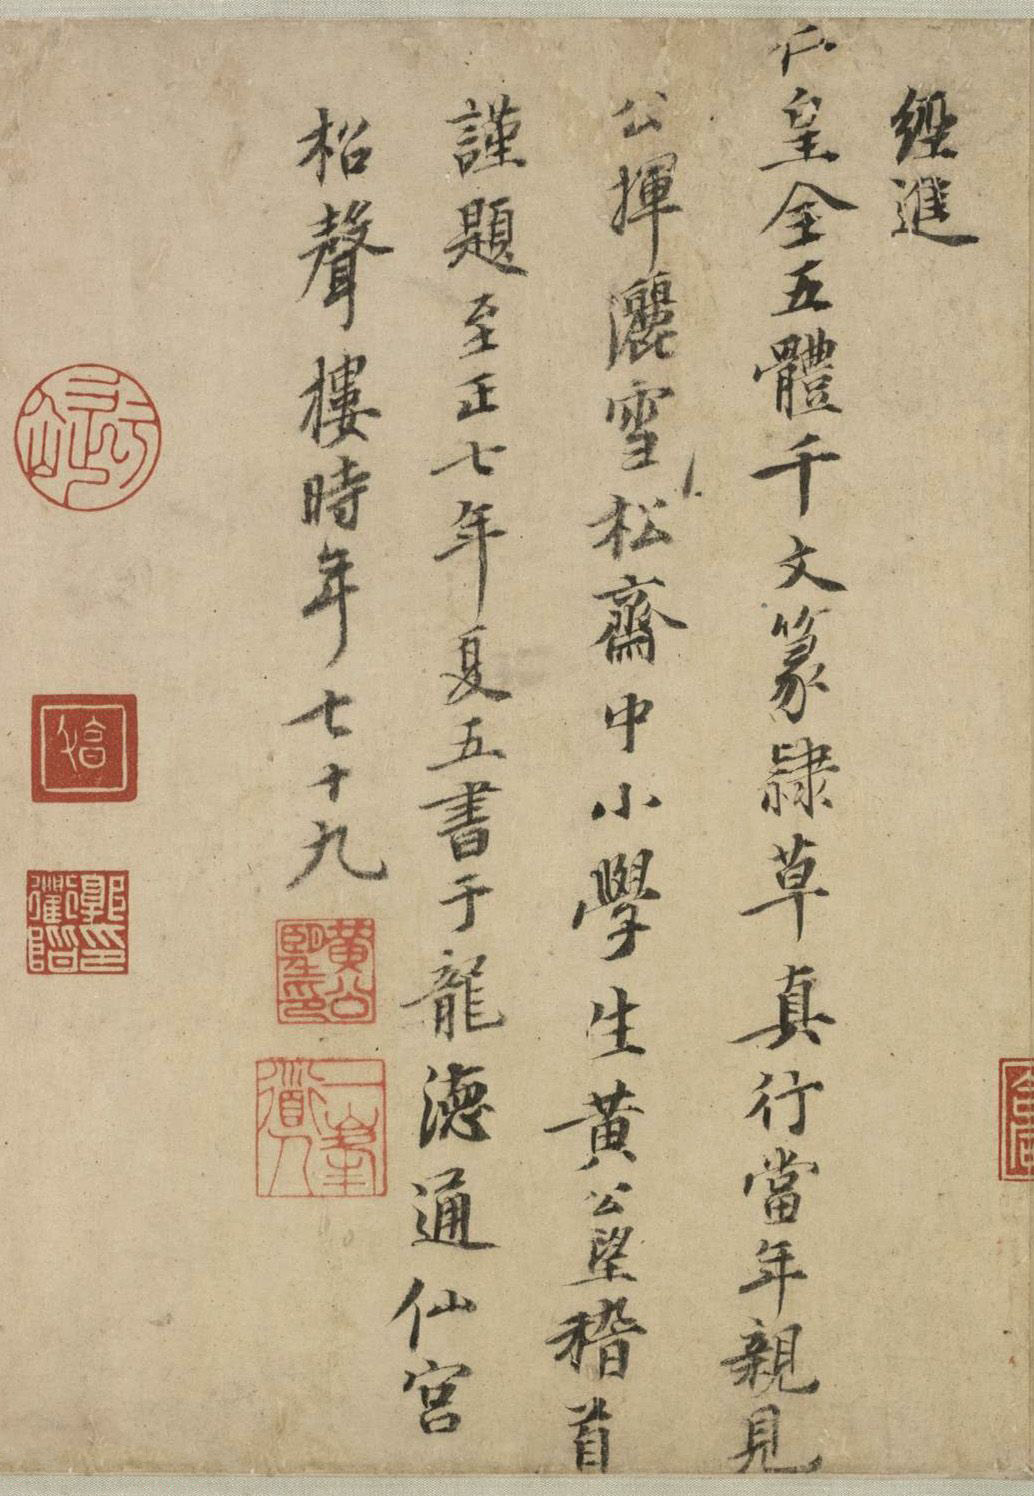 經進
仁皇全五體千文篆隸草真行當年親見
公揮灑雪松齋中小學生黃公望稽首
謹題至正七年夏五書于龍德通仙宮
松聲樓時年七十九
黃公望印
一峯道人